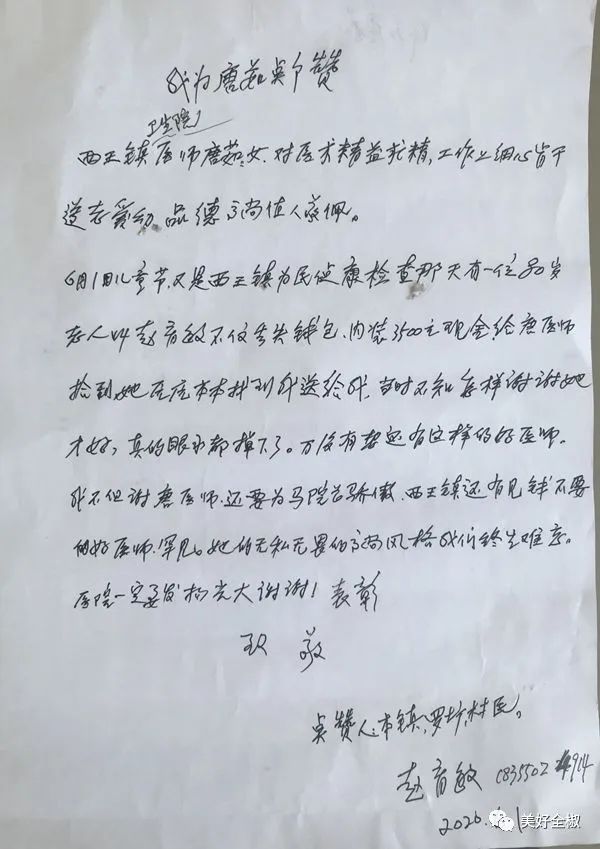 我为唐茹点个赞
卫生院
西王镇医师唐茹,女.对医术精益求精,工作上细心肯干
品德高尚值人敬佩。
6月1日儿童节,又是西王镇为民健康检查那天有一位80岁
老人叫赵育敏不仅丢失钱包,内装3500元现金给唐医师
拾到,她找到我送给我,当时不知怎样谢谢她
才好,真的眼水都掉下了。还有这样的好医师.
我不但谢唐医师.还要为马院长骄傲.西王镇还有见钱不要
的好医师.罕见。她的无私无畏的高尚风格我们终生难忘。
医院一定要发扬光大谢谢!表彰
致 敬
点赞人:本镇,罗圩村民。
赵育敏
美好全椒